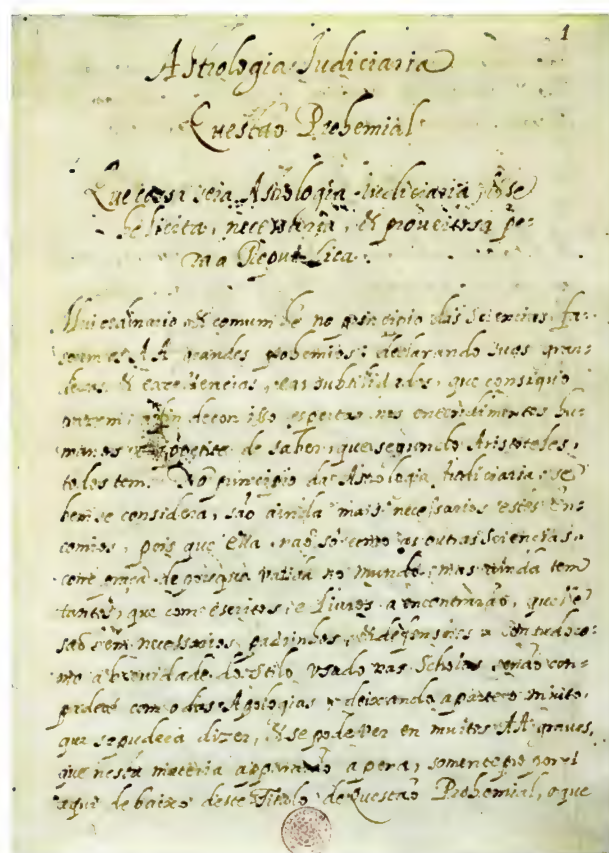 1
Astrologia Iudiciaria
Questaõ Prohemial
Que cousa seia Astrologia Iudiciaria, & se
he licita, necessaria, & proueitosa pe=
ra a Republica.
Mui ordinario & comum he no principio das Sciencias, fa=
serem os AA grandes prohemios; declarando suas gran=
desas & excellencias, e as subtilidades, que consiguo
trazem; afin de com isso espertar nos entendimentos hu=
manos o appetite de saber, que segundo Aristoteles,
todos tem. No principio da Astrologia Iudiciaria, se
bem se considera, saõ ainda mais necessarios estes en=
comios, pois que ella, naõ só como as outras Sciencias,
corre de valida no mundo, mas ainda tem
tantos, que com escritos, e Livros a encontraraõ, que lhe
saõ bem necessarios, padrinhos, & defensores. Contudo co=
mo a breuidade do stilo, usado nas Scholas naõ com=
padece com o das Apologias, deixando a parte o muito,
que se pudera dizer, & se pode ver en muitos AA graues,
que nesta materia a pena, somente porei
aqui debaixo deste Titolo de Questaõ Prohemial, o que